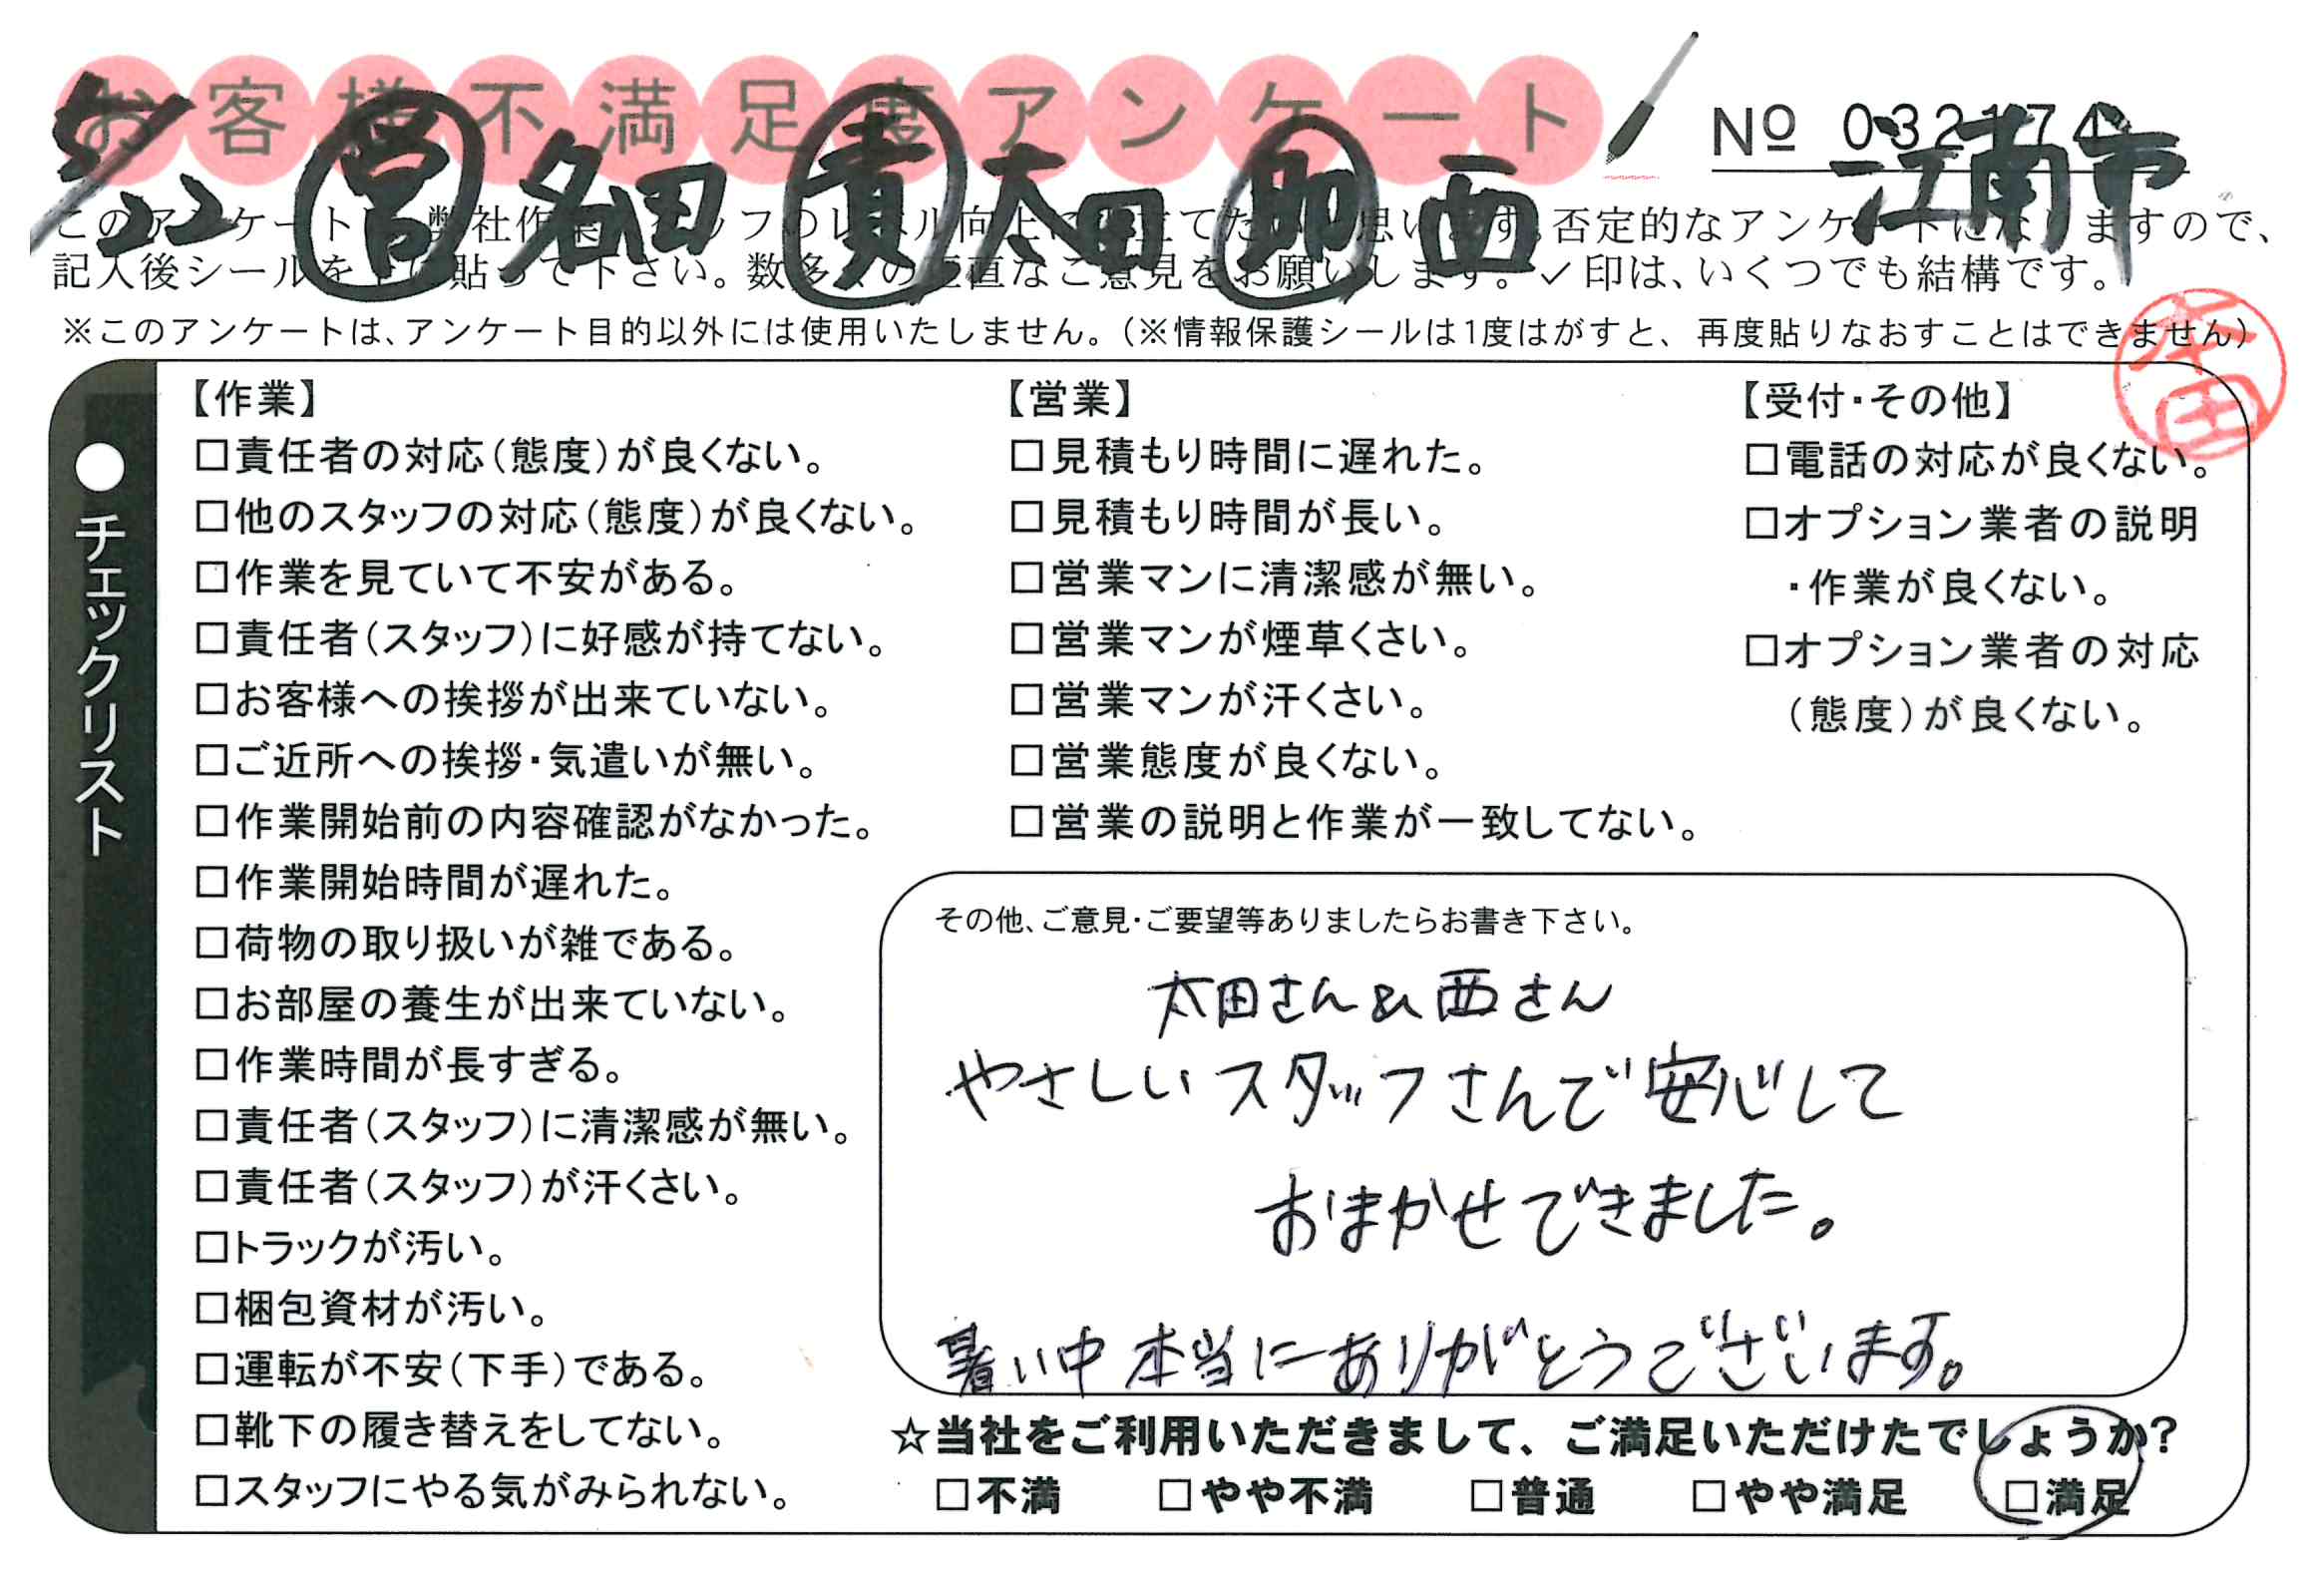 お客様不満足度アンケート
№ 032174
5/22 営 名田 責 太田 助 西 江南市
このアンケートは、弊社作業スタッフのレベル向上に役立てたいと思います。否定的なアンケートになりますので、
記入後シールを上に貼って下さい。数多くの正直なご意見をお願いします。✓印は、いくつでも結構です。
※このアンケートは、アンケート目的以外には使用いたしません。（※情報保護シールは1度はがすと、再度貼りなおすことはできません）
本田
●チェックリスト
【作業】
□責任者の対応（態度）が良くない。
□他のスタッフの対応（態度）が良くない。
□作業を見ていて不安がある。
□責任者（スタッフ）に好感が持てない。
□お客様への挨拶が出来ていない。
□ご近所への挨拶・気遣いが無い。
□作業開始前の内容確認がなかった。
□作業開始時間が遅れた。
□荷物の取り扱いが雑である。
□お部屋の養生が出来ていない。
□作業時間が長すぎる。
□責任者（スタッフ）に清潔感が無い。
□責任者（スタッフ）が汗くさい。
□トラックが汚い。
□梱包資材が汚い。
□運転が不安（下手）である。
□靴下の履き替えをしてない。
□スタッフにやる気がみられない。
【営業】
□見積もり時間に遅れた。
□見積もり時間が長い。
□営業マンに清潔感が無い。
□営業マンが煙草くさい。
□営業マンが汗くさい。
□営業態度が良くない。
□営業の説明と作業が一致してない。
【受付・その他】
□電話の対応が良くない。
□オプション業者の説明
・作業が良くない。
□オプション業者の対応
（態度）が良くない。
その他、ご意見・ご要望等ありましたらお書き下さい。
太田さん&西さん
やさしいスタッフさんで安心して
おまかせできました。
暑い中本当にありがとうございます。
☆当社をご利用いただきまして、ご満足いただけたでしょうか?
□不満 □やや不満 □普通 □やや満足 □満足